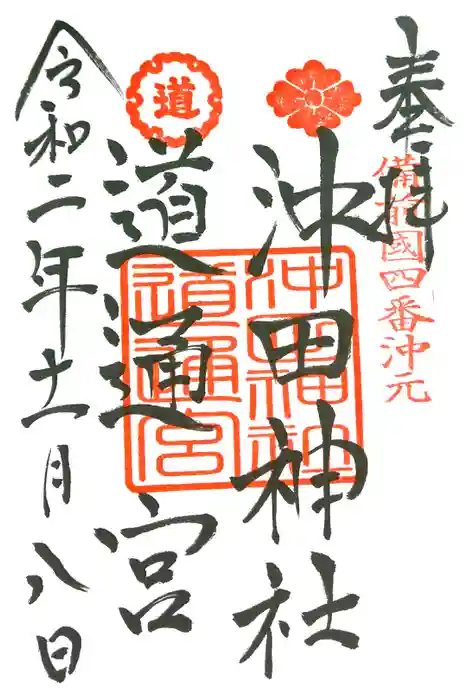 奉拝
備前國四番沖元
沖田神社
道通宮
道
沖田神社
道通宮
令和二年十一月八日